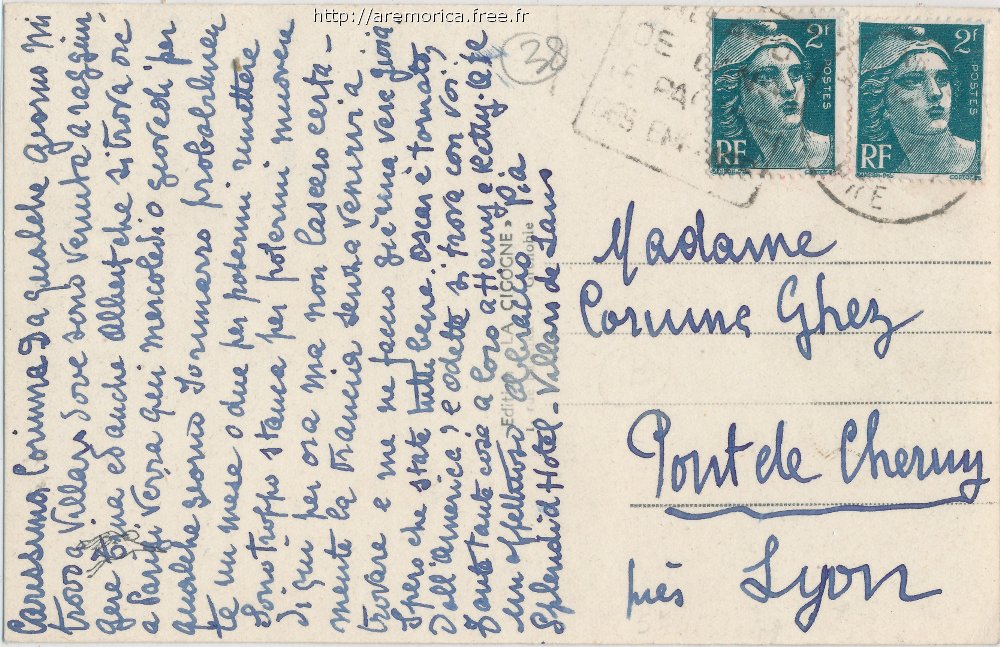 http://aremorica.free.fr
38
DE
LE PA
DES ENF
2f
POSTES
RF
2f
POSTES
RF
Carissima Corinna da qualche giorno mi
trovo a Villars dove sono venuta a raggiun
gere ed anche Albert che si trova ora
a Parigi verra qui mercoledi o giovedi per
qualche giorno torneremo probabilmen
te un mese o due per potermi rimettere
sono troppo stanca per potermi muovere
di qui per ora ma non lascero certa-
mente la Francia senza venirvi a
trovare e me ne faccio già una vera gioia
Spero che state tutti bene. Oscar è tornato
dall'america, e Odette si trova con voi;
Tante tante cose a loro a Henry e Ketty la te
un affettuoso abbraccio Pia
Splendid Hotel - Villars de Lans
Edit « LA CIGOGNE »
Grenoble
Madame
Corinna Ghez
Pont de Cheruy
près Lyon